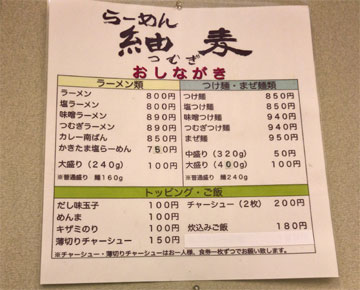 らーめん
紬麦
つむぎ
おしながき
ラーメン類
ラーメン 800円
塩ラーメン 800円
味噌ラーメン 890円
つむぎラーメン 890円
カレー南ばん 850円
かきたま塩らーめん 750円
大盛り(240g) 100円
※普通盛り 麺160g
つけ麺・まぜ麺類
つけ麺 850円
塩つけ麺 850円
味噌つけ麺 940円
つむぎつけ麺 940円
まぜ麺 950円
中盛り(320g) 50円
大盛り(400g) 100円
※普通盛り 麺240g
トッピング・ご飯
だし味玉子 100円
めんま 100円
キザミのり 100円
薄切りチャーシュー 150円
チャーシュー(2枚) 200円
炊込みご飯 180円
※チャーシュー・薄切りチャーシューはお一人様、食券一枚ずつでお願い致します。